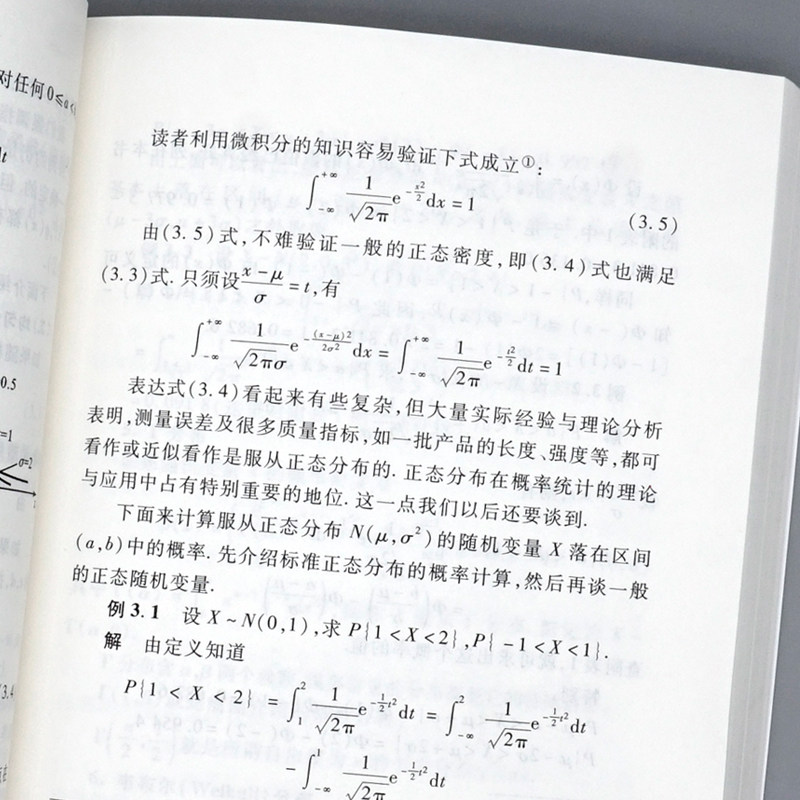 对任何0≤a<
读者利用微积分的知识容易验证下式成立①:
∫_{-∞}^{+∞} \frac{1}{\sqrt{2π}} e^{-\frac{x^2}{2}} dx = 1 (3.5)
由(3.5)式,不难验证一般的正态密度,即(3.4)式也满足
(3.3)式. 只须设\frac{x-μ}{σ}=t,有
∫_{-∞}^{+∞} \frac{1}{\sqrt{2π}σ} e^{-\frac{(x-μ)^2}{2σ^2}} dx = ∫_{-∞}^{+∞} \frac{1}{\sqrt{2π}} e^{-\frac{t^2}{2}} dt = 1
表达式(3.4)看起来有些复杂,但大量实际经验与理论分析
表明,测量误差及很多质量指标,如一批产品的长度、强度等,都可
看作或近似看作是服从正态分布的. 正态分布在概率统计的理论
与应用中占有特别重要的地位. 这一点我们以后还要谈到.
下面来计算服从正态分布 N(μ,σ²)的随机变量 X 落在区间
(a,b)中的概率. 先介绍标准正态分布的概率计算,然后再谈一般
的正态随机变量.
例 3.1 设 X~N(0,1),求 P{1<X<2},P{-1<X<1}.
解 由定义知道
P{1<X<2} = ∫_{1}^{2} \frac{1}{\sqrt{2π}} e^{-\frac{1}{2}t^2} dt = ∫_{-∞}^{2} \frac{1}{\sqrt{2π}} e^{-\frac{1}{2}t^2} dt
- ∫_{-∞}^{1} \frac{1}{\sqrt{2π}} e^{-\frac{1}{2}t^2} dt
0.5
=1
σ=2